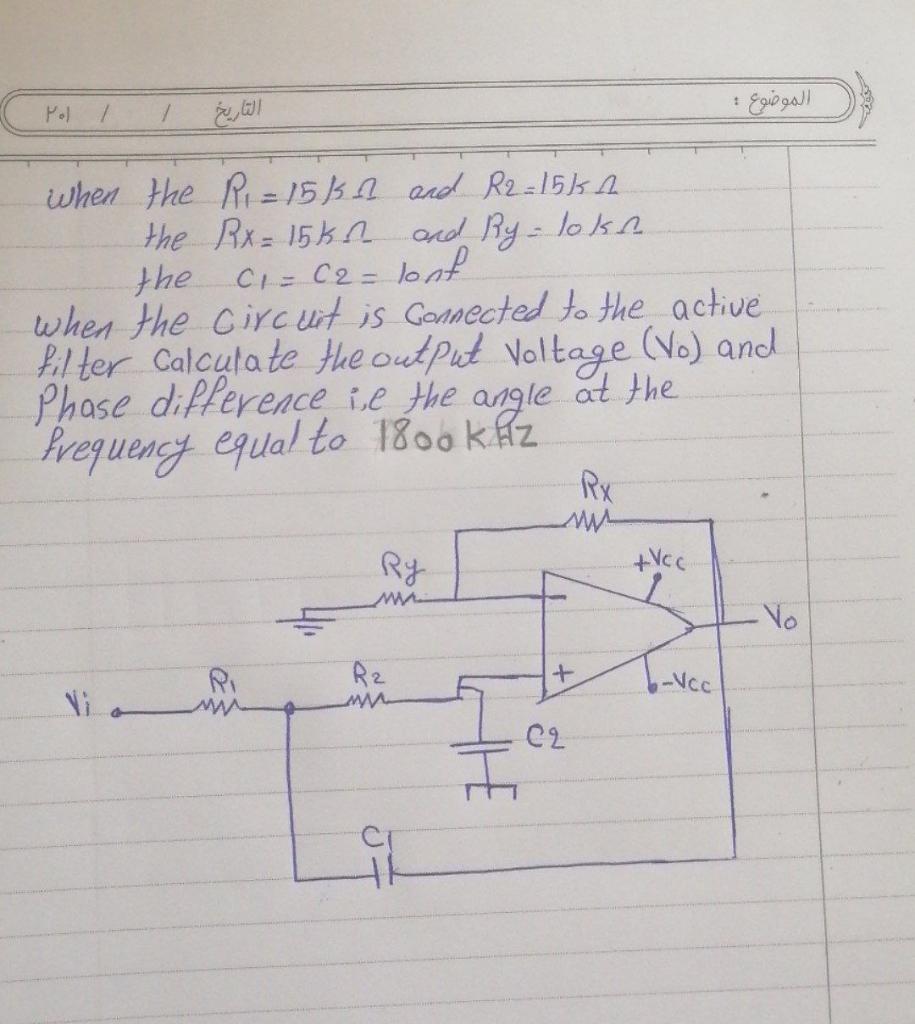 الموضوع : التاريخ / / ٢٠١
when the R1 = 15kΩ and R2 = 15kΩ
the Rx = 15kΩ and Ry = 10kΩ
the C1 = C2 = 10nf
when the circuit is Connected to the active
filter Calculate the output Voltage (Vo) and
Phase difference i,e the angle at the
frequency equal to 1800 kHz
Rx
Ry
+Vcc
Vo
-
+
-Vcc
Vi
R1
R2
C2
C1